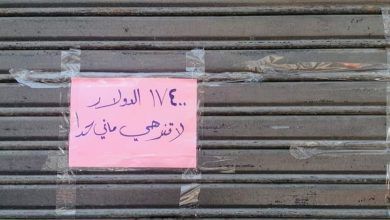 ١٧٤٠٠ الدولار
لا تندهي ماني حدا